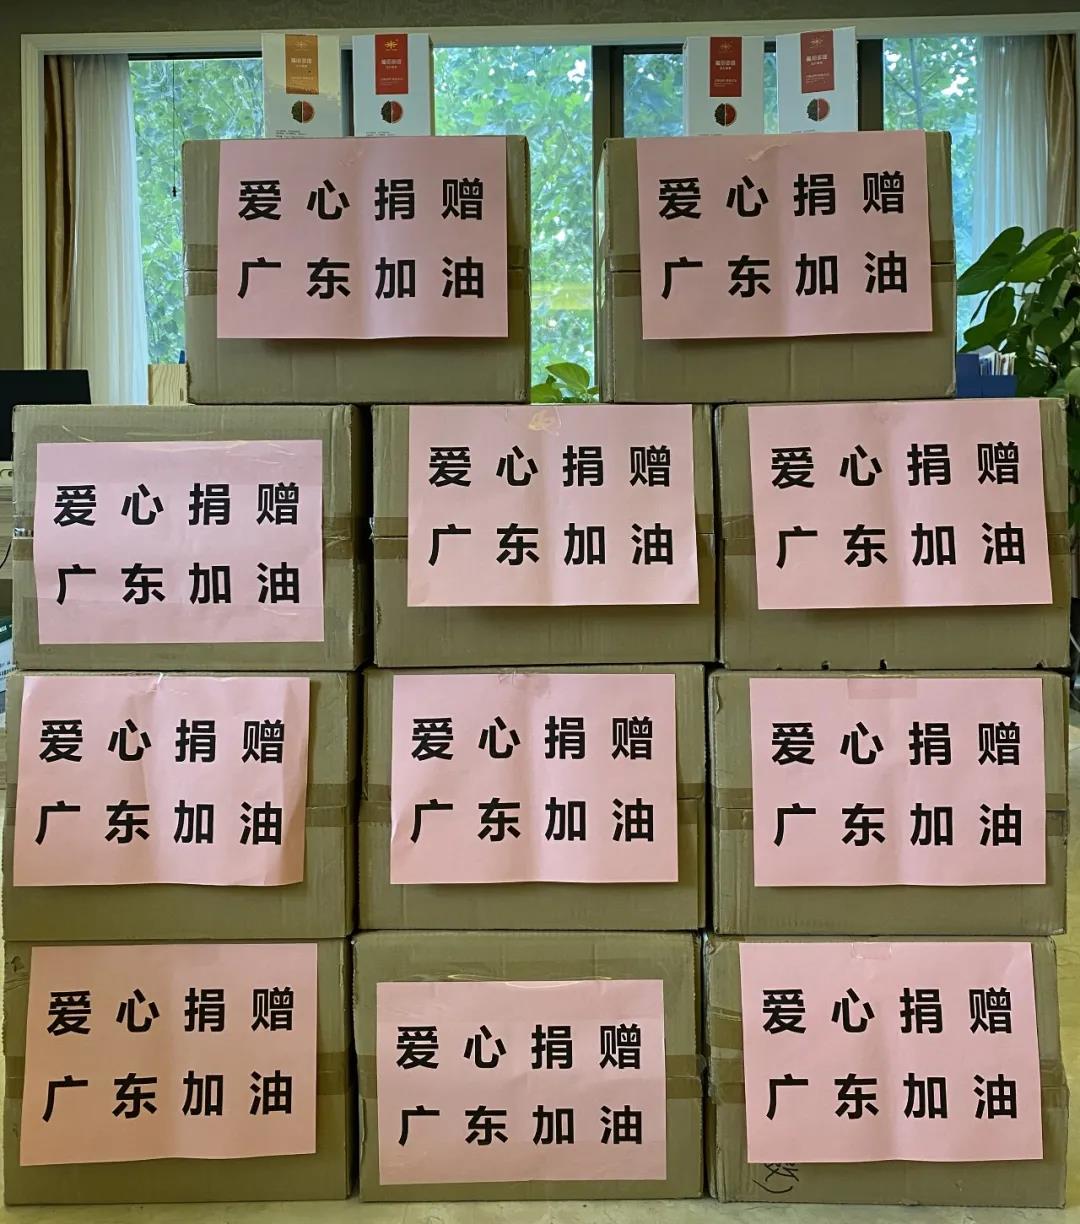 爱心捐赠
广东加油
爱心捐赠
广东加油
爱心捐赠
广东加油
爱心捐赠
广东加油
爱心捐赠
广东加油
爱心捐赠
广东加油
爱心捐赠
广东加油
爱心捐赠
广东加油
爱心捐赠
广东加油
爱心捐赠
广东加油
爱心捐赠
广东加油